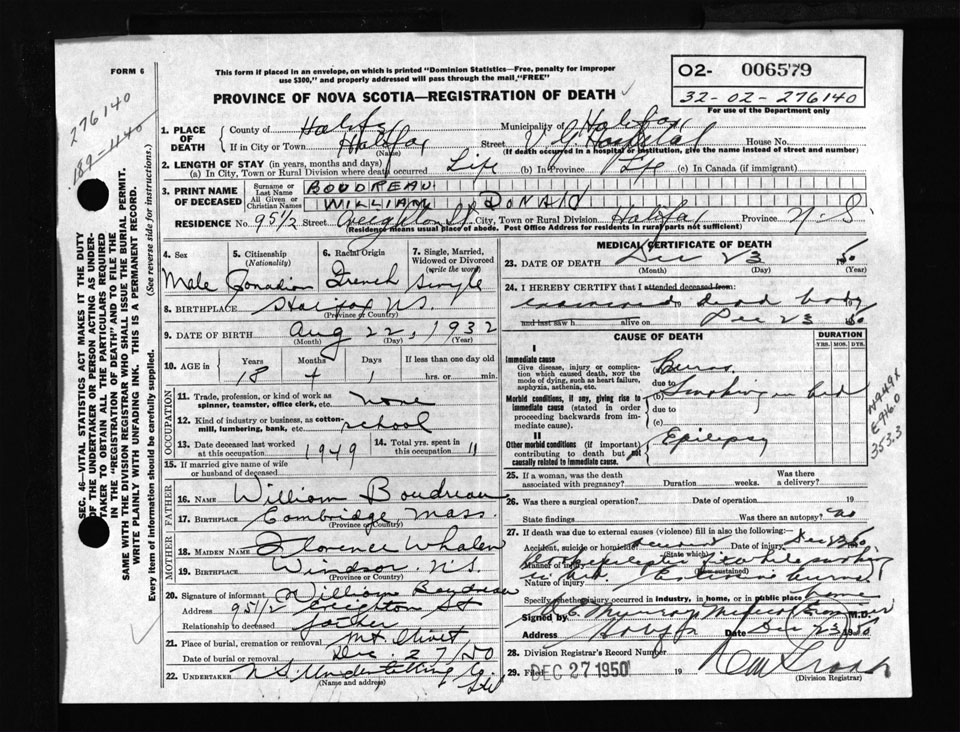 FORM 6
276140
189-440
This form if placed in an envelope, on which is printed "Dominion Statistics—Free, penalty for improper
use $300," and properly addressed will pass through the mail, "FREE"
PROVINCE OF NOVA SCOTIA—REGISTRATION OF DEATH
02- 006579
32-02-276140
For use of the Department only
1. PLACE OF DEATH
County of Halifax Municipality of Halifax
If in City or Town Halifax (Name) Street V G Hospital House No.
(If death occurred in a hospital or institution, give the name instead of street and number)
2. LENGTH OF STAY (in years, months and days)
(a) In City, Town or Rural Division where death occurred Life (b) In Province Life (c) In Canada (if immigrant)
3. PRINT NAME OF DECEASED
Surname or Last Name BOUDREAU
All Given or Christian Names WILLIAM DONALD
RESIDENCE No. 95 1/2 Street Creighton St City, Town or Rural Division Halifax Province N.S.
(Residence means usual place of abode. Post Office Address for residents in rural parts not sufficient)
4. Sex 5. Citizenship (Nationality) 6. Racial Origin 7. Single, Married, Widowed or Divorced (write the word)
Male Canadian French Single
8. BIRTHPLACE Halifax N.S.
(Province or Country)
9. DATE OF BIRTH Aug 22, 1932
(Month) (Day) (Year)
10. AGE in Years Months Days If less than one day old
18 4 1 hrs. or min.
OCCUPATION
11. Trade, profession, or kind of work as spinner, teamster, office clerk, etc. none
12. Kind of industry or business, as cotton-mill, lumbering, bank, etc. school
13. Date deceased last worked at this occupation 1949 14. Total yrs. spent in this occupation 11
15. If married give name of wife or husband of deceased
FATHER
16. NAME William Boudreau
17. BIRTHPLACE Cambridge Mass.
(Province or Country)
MOTHER
18. MAIDEN NAME Florence Whalen
19. BIRTHPLACE Windsor N.S.
(Province or Country)
20. Signature of informant William Boudreau
Address 95 1/2 Creighton St
Relationship to deceased father
21. Place of burial, cremation or removal Mt Olivet
Date of burial or removal Dec. 27/50
22. UNDERTAKER N.S. Undertaking Co.
(Name and address)
MEDICAL CERTIFICATE OF DEATH
23. DATE OF DEATH Dec 23 50
(Month) (Day) (Year)
24. I HEREBY CERTIFY that I attended deceased from:
examined dead body
and last saw h alive on Dec 23 50
CAUSE OF DEATH
DURATION
YRS. MOS. DYS.
I
Immediate cause
Give disease, injury or complication which caused death, NOT the mode of dying, such as heart failure, asphyxia, asthenia, etc.
Burns
due to
(b) Smoking in bed
Morbid conditions, if any, giving rise to immediate cause (stated in order proceeding backwards from immediate cause).
due to
(c)
II
Other morbid conditions (if important) contributing to death but not causally related to immediate cause.
Epilepsy
N949X
E916.0
353.3
25. If a woman, was the death associated with pregnancy? Duration weeks. Was there a delivery?
26. Was there a surgical operation? Date of operation 19
State findings Was there an autopsy? no
27. If death was due to external causes (violence) fill in also the following:—
Accident, suicide or homicide? accident Date of injury Dec 23 50
(State which)
Manner of injury epileptic fit while smoking
(How sustained)
in bed. Extensive burns
Nature of injury
Specify whether injury occurred in industry, in home, or in public place home
Signed by Murray Medical Examiner M.D.
Address Halifax Date Dec 23 1950
28. Division Registrar's Record Number
29. Filed DEC 27 1950 19
(Division Registrar)
SEC. 46—VITAL STATISTICS ACT MAKES IT THE DUTY
OF THE UNDERTAKER OR PERSON ACTING AS UNDER-
TAKER TO OBTAIN ALL THE PARTICULARS REQUIRED
IN THE "REGISTRATION OF DEATH" AND TO FILE THE
SAME WITH THE DIVISION REGISTRAR WHO SHALL ISSUE THE BURIAL PERMIT.
WRITE PLAINLY WITH UNFADING INK. THIS IS A PERMANENT RECORD.
Every item of information should be carefully supplied. (See reverse side for instructions.)